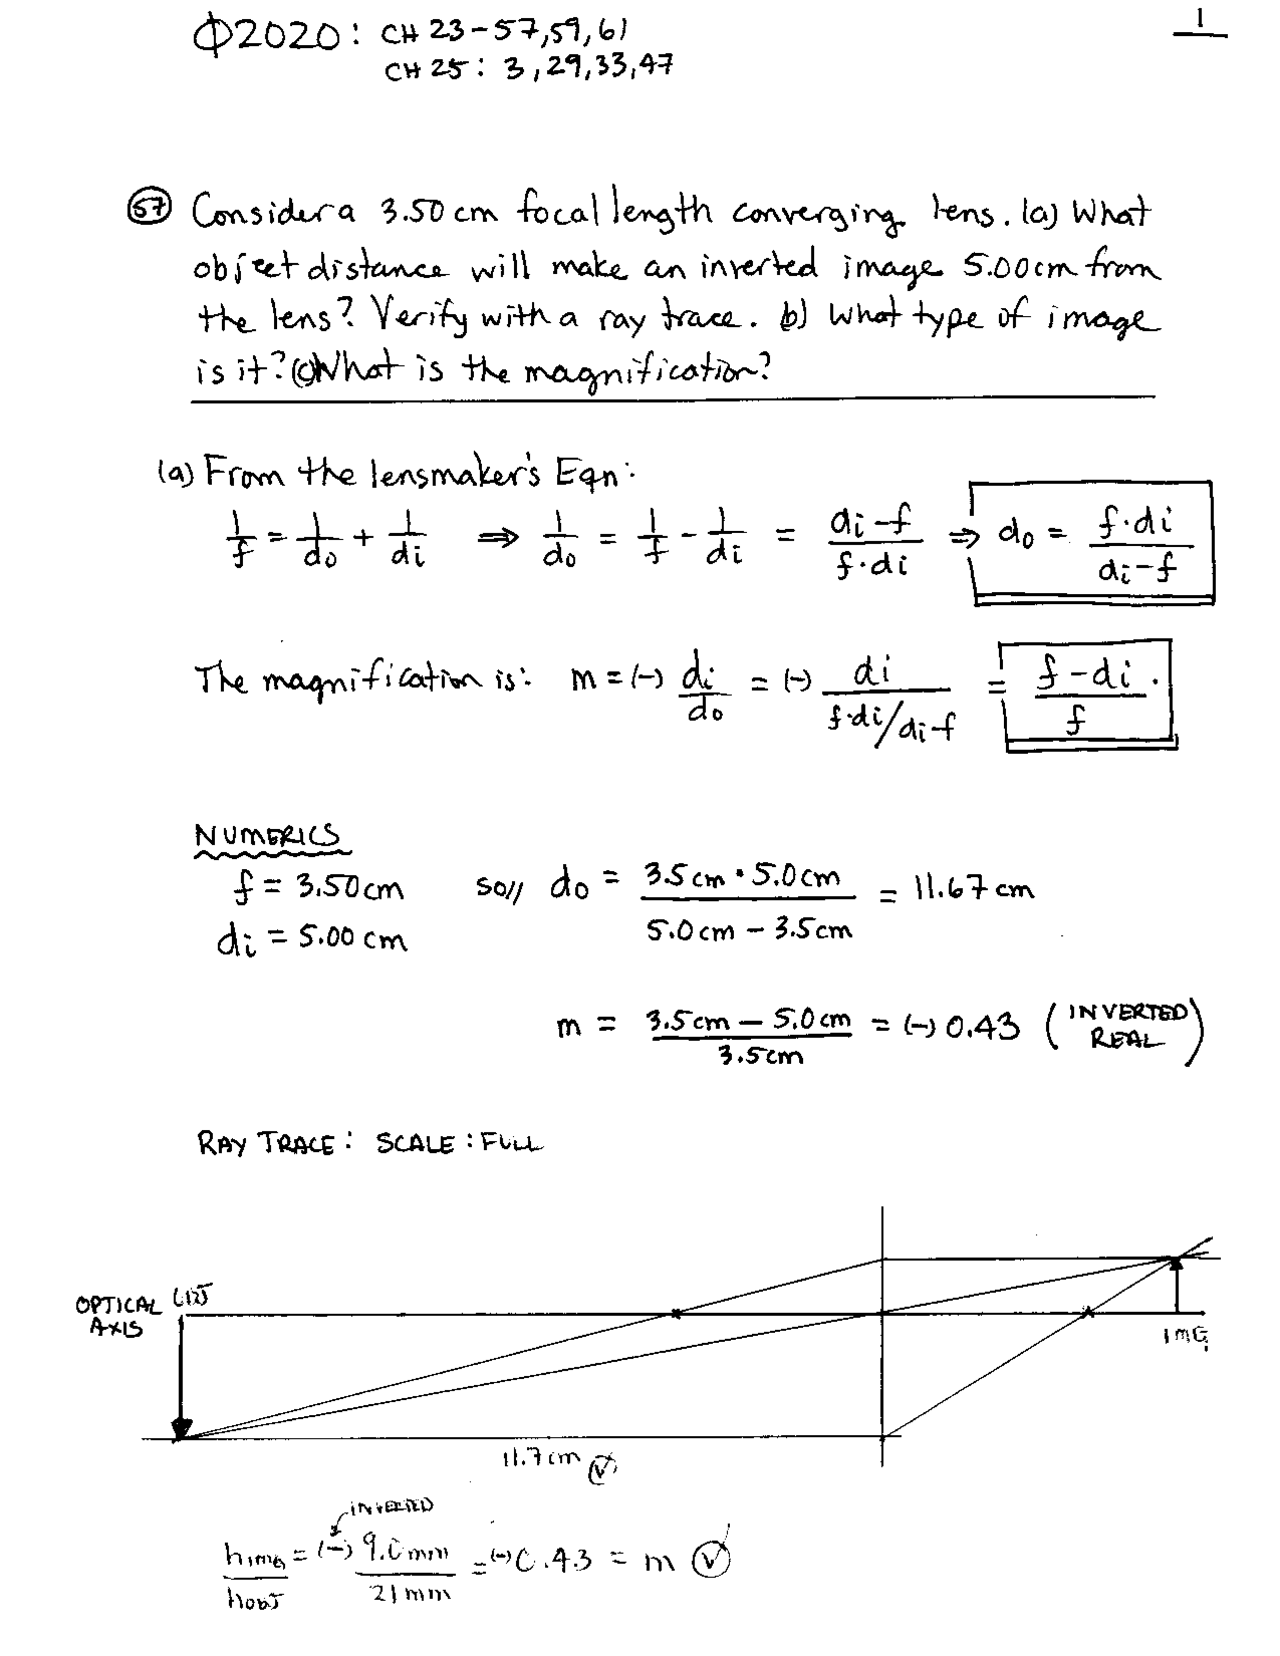 Φ2020: CH 23-57,59,61
CH 25: 3,29,33,47
1
57 Consider a 3.50 cm focal length converging lens. (a) What
object distance will make an inverted image 5.00cm from
the lens? Verify with a ray trace. b) What type of image
is it? (c) What is the magnification?
(a) From the lensmaker's Eqn:
1/f = 1/do + 1/di ⇒ 1/do = 1/f - 1/di = di-f / f·di ⇒ do = f·di / di-f
The magnification is: m = (-) di/do = (-) di / f·di/di-f = f-di / f.
NUMERICS
f = 3.50cm so// do = 3.5cm · 5.0cm / 5.0cm - 3.5cm = 11.67 cm
di = 5.00 cm
m = 3.5cm - 5.0cm / 3.5cm = (-) 0.43 (INVERTED REAL)
RAY TRACE: SCALE: FULL
OPTICAL
AXIS
IMG
11.7cm ✓
INVERTED
hIMG / hOBJ = (-) 9.0mm / 21mm = (-) 0.43 = m ✓